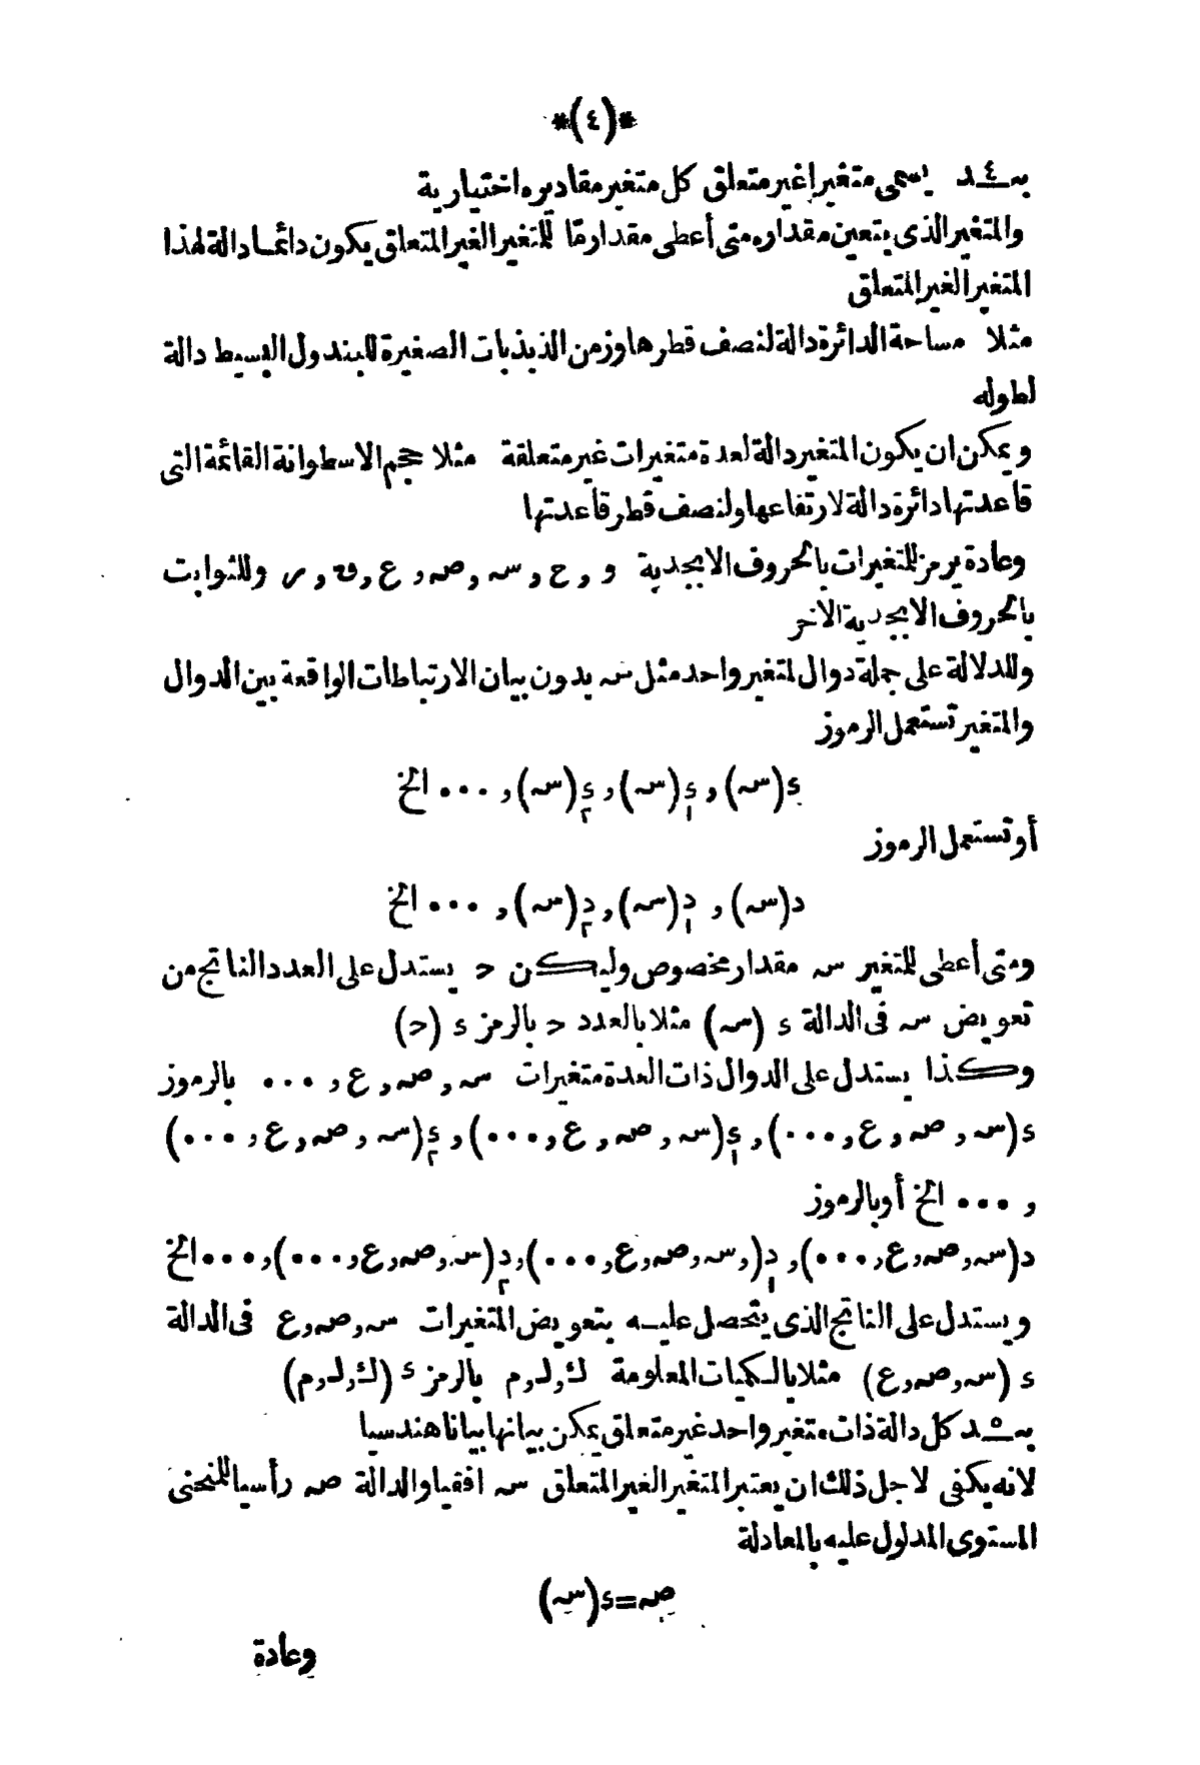 *(٤)*
بـ٤ـد يسمى متغيرا غير متعلق كل متغير مقاديره اختيارية
والمتغير الذى يتعين مقداره متى أعطى مقدار مّا للمتغير الغير المتعلق يكون دائما دالة لهذا
المتغير الغير المتعلق
مثلا مساحة الدائرة دالة لنصف قطرها وزمن الذبذبات الصغيرة للبندول البسيط دالة
لطوله
ويمكن ان يكون المتغير دالة لعدة متغيرات غير متعلقة مثلا حجم الاسطوانة القائمة التى
قاعدتها دائرة دالة لارتفاعها ولنصف قطر قاعدتها
وعادة يرمز للمتغيرات بالحروف الابجدية و , ح , سـ , صـ , ع , ق , ر وللثوابت
بالحروف الابجدية الأخر
وللدلالة على جملة دوال لمتغير واحد مثل سـ بدون بيان الارتباطات الواقعة بين الدوال
والمتغير تستعمل الرموز
ء(سـ) , ء١(سـ) , ء٢(سـ) , ••• الخ
أو تستعمل الرموز
د(سـ) , د١(سـ) , د٢(سـ) , ••• الخ
ومتى أعطى للمتغير سـ مقدار مخصوص وليكن ح يستدل على العدد الناتج من
تعويض سـ فى الدالة ء (سـ) مثلا بالعدد ح بالرمز ء (ح)
وكذا يستدل على الدوال ذات العدة متغيرات سـ , صـ , ع , ••• بالرموز
ء(سـ , صـ , ع , •••) , ء١(سـ , صـ , ع , •••) , ء٢(سـ , صـ , ع , •••)
, ••• الخ أو بالرموز
د(سـ , صـ , ع , •••) , د١(, سـ , صـ , ع , •••) , د٢(سـ , صـ , ع , •••) , ••• الخ
ويستدل على الناتج الذى يتحصل عليه بتعويض المتغيرات سـ , صـ , ع فى الدالة
ء (سـ , صـ , ع) مثلا بالكميات المعلومة ك , ل , م بالرمز ء (ك , ل , م)
بـ٥ـد كل دالة ذات متغير واحد غير متعلق يمكن بيانها بيانا هندسيا
لانه يكفى لاجل ذلك ان يعتبر المتغير الغير المتعلق سـ افقيا والدالة صـ رأسيا للمنحنى
المستوى المدلول عليه بالمعادلة
صـ = ء(سـ)
وعادة